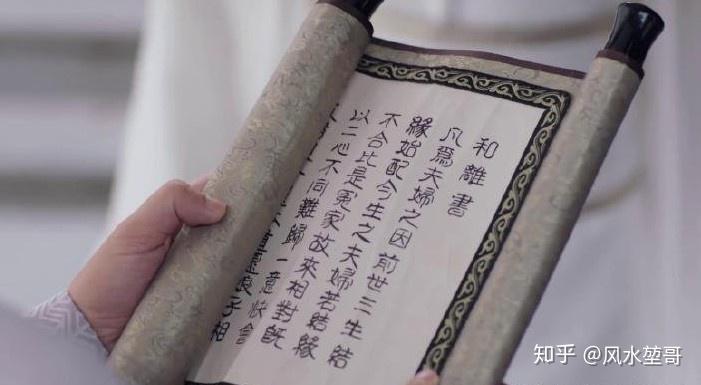 和離書
凡爲夫婦之因前世三生結
緣始配今生之夫婦若結緣
不合比是冤家故來相對旣
以二心不同難歸一意快會
子相
知乎 @风水堃哥